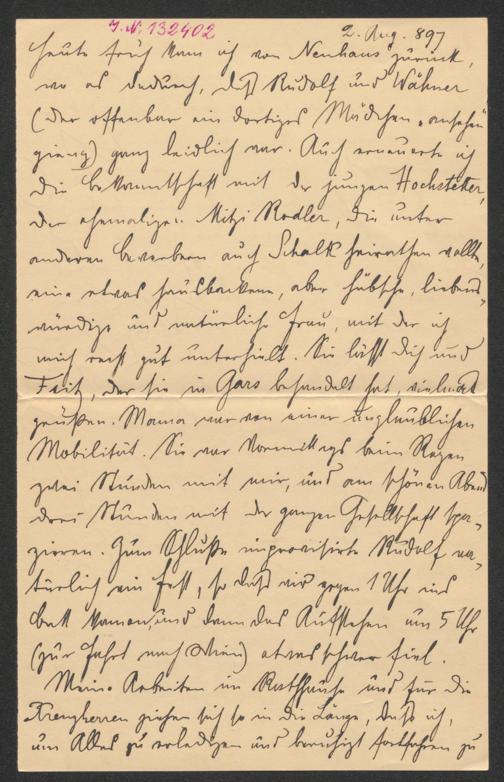 J. N. 132402
2. Aug. 897
Heute früh kam ich von Neuhaus zurück,
wo es dadurch, daß Rudolf und Wähner
(der offenbar ein dortiges Mädchen „ansehen"
gieng) ganz leidlich war. Auch erneuerte ich
die Bekanntschaft mit der jungen Hochstetter,
der ehemaligen Mitzi Rodler, die unter
anderen Bewerbern auch Schalk heirathen wollte,
eine etwas hausbackene, aber hübsche, liebens-
würdige und natürliche Frau, mit der ich
mich recht gut unterhielt. Sie läßt Dich und
Fritz, der sie in Gars behandelt hat, vielmals
grüßen. Mama war von einer unglaublichen
Mobilität. Sie war Vormittags beim Regen
zwei Stunden mit mir, und am schönen Abend
drei Stunden mit der ganzen Gesellschaft spa-
zieren. Zum Schluße improvisirte Rudolf na-
türlich ein Fest, so daß wir gegen 1 Uhr ins
Bett kamen, und dann das Aufstehen um 5 Uhr
(zur Fahrt nach Wien) etwas schwer fiel.
Meine Arbeiten im Rathhause und für die
Kreuzherren ziehen sich so in die Länge, daß ich,
um Alles zu erledigen und beruhigt fortfahren zu